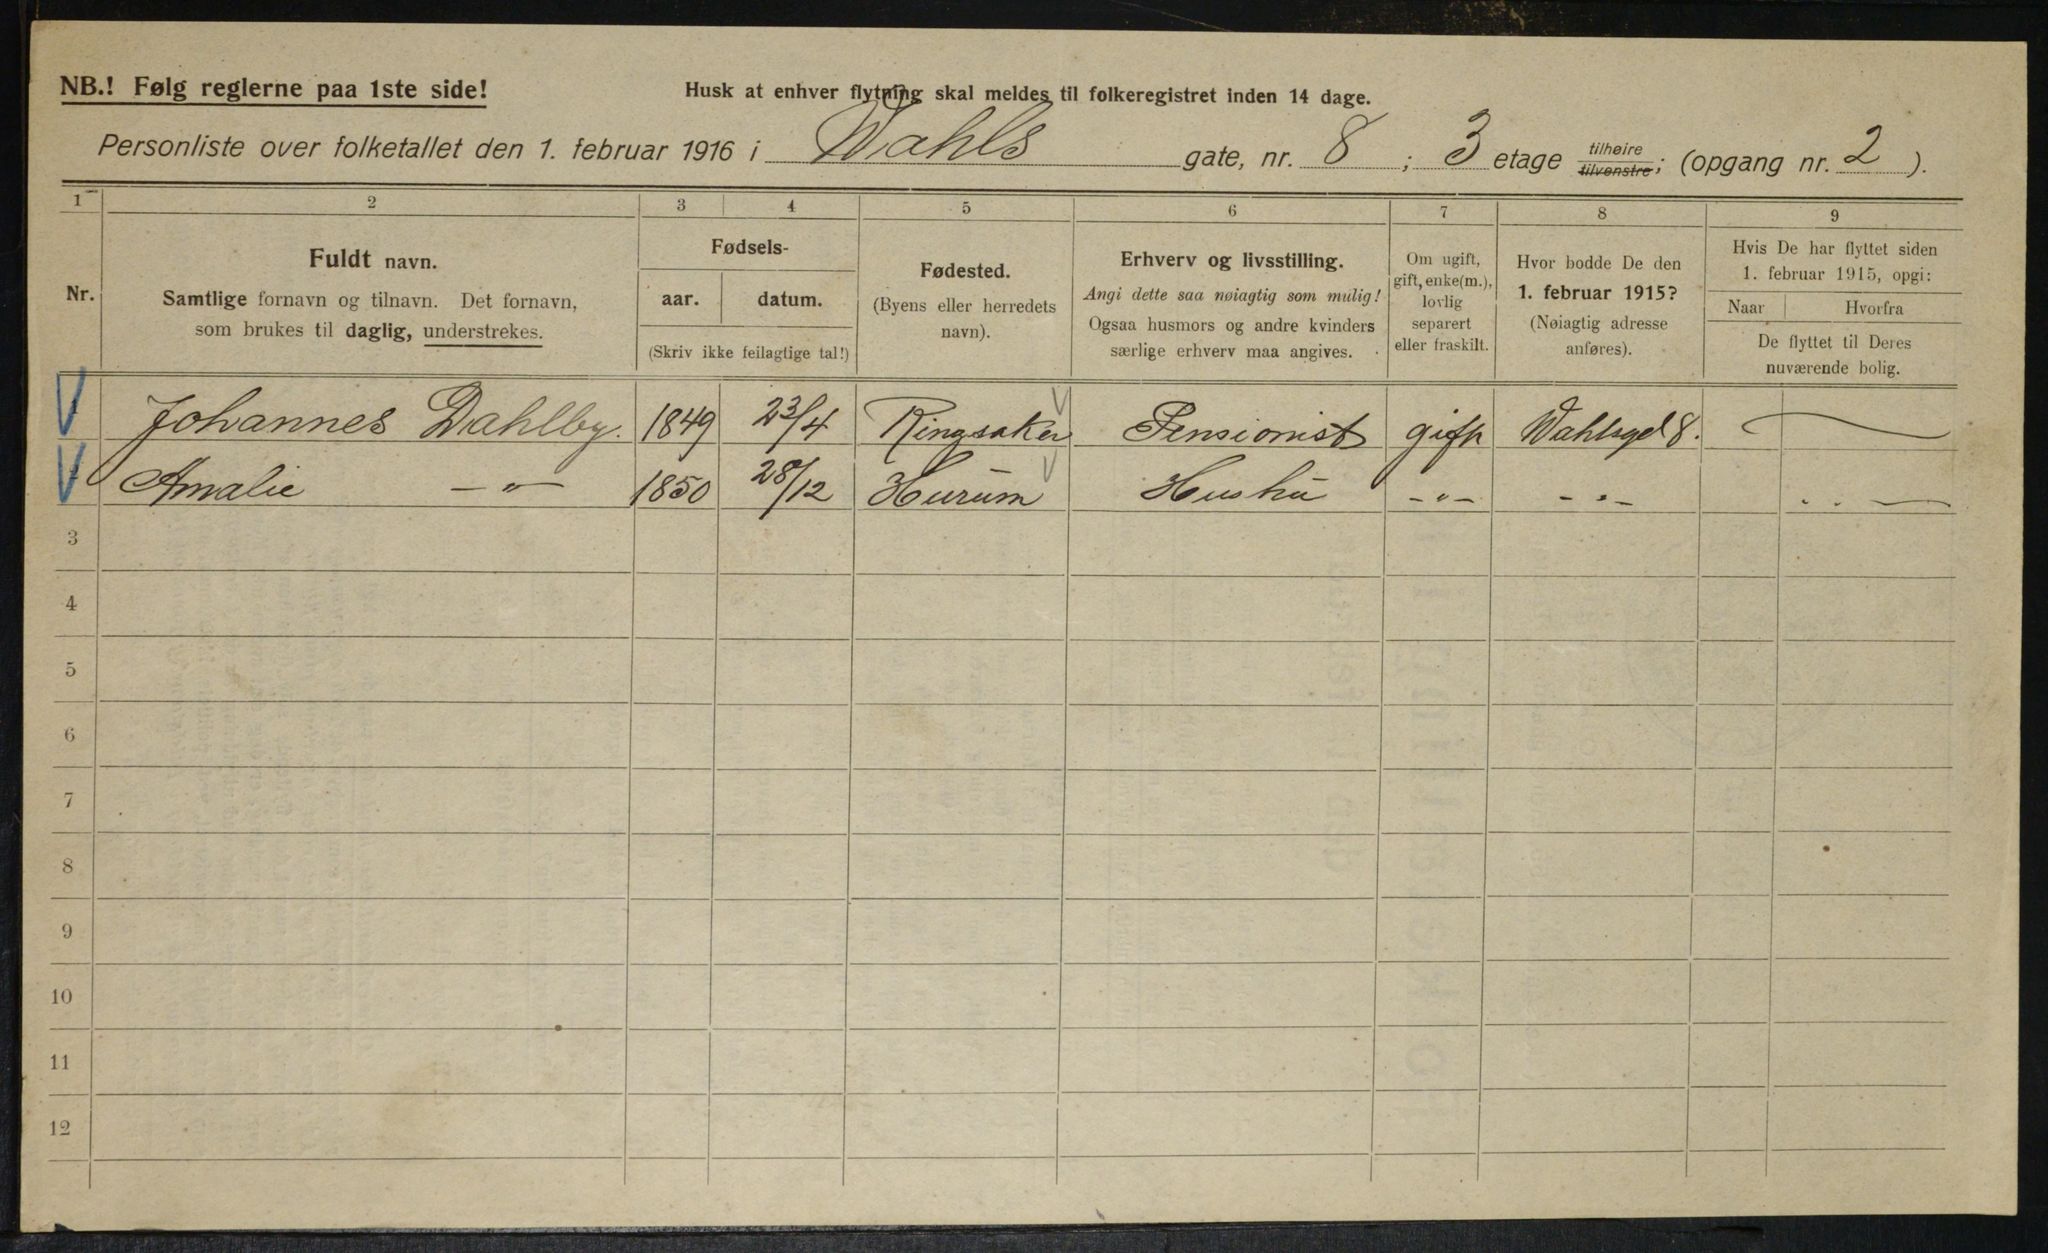 NB.! Følg reglerne paa 1ste side!
Husk at enhver flytning skal meldes til folkeregistret inden 14 dage.
Personliste over folketallet den 1. februar 1916 i Wahls gate, nr. 8 ; 3 etage tilhøire tilvenstre; (opgang nr. 2 ).
1 2 3 4 5 6 7 8 9
Nr.
Fuldt navn.
Samtlige fornavn og tilnavn. Det fornavn,
som brukes til daglig, understrekes.
Fødsels-
aar. datum.
(Skriv ikke feilagtige tal!)
Fødested.
(Byens eller herredets
navn).
Erhverv og livsstilling.
Angi dette saa nøiagtig som mulig!
Ogsaa husmors og andre kvinders
særlige erhverv maa angives.
Om ugift,
gift, enke(m.),
lovlig
separert
eller fraskilt.
Hvor bodde De den
1. februar 1915?
(Nøiagtig adresse
anføres).
Hvis De har flyttet siden
1. februar 1915, opgi:
Naar Hvorfra
De flyttet til Deres
nuværende bolig.
Johannes Dahlby. 1849 23/4 Ringsaker Pensionist gift Wahlsgd 8.
Amalie -"- 1850 28/12 Hurum Hustru -"- -"-
3
4
5
6
7
8
9
10
11
12